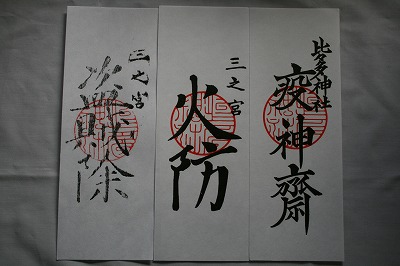 比多神社
疫神齋
三之宮
火防
三之宮
盗賊除